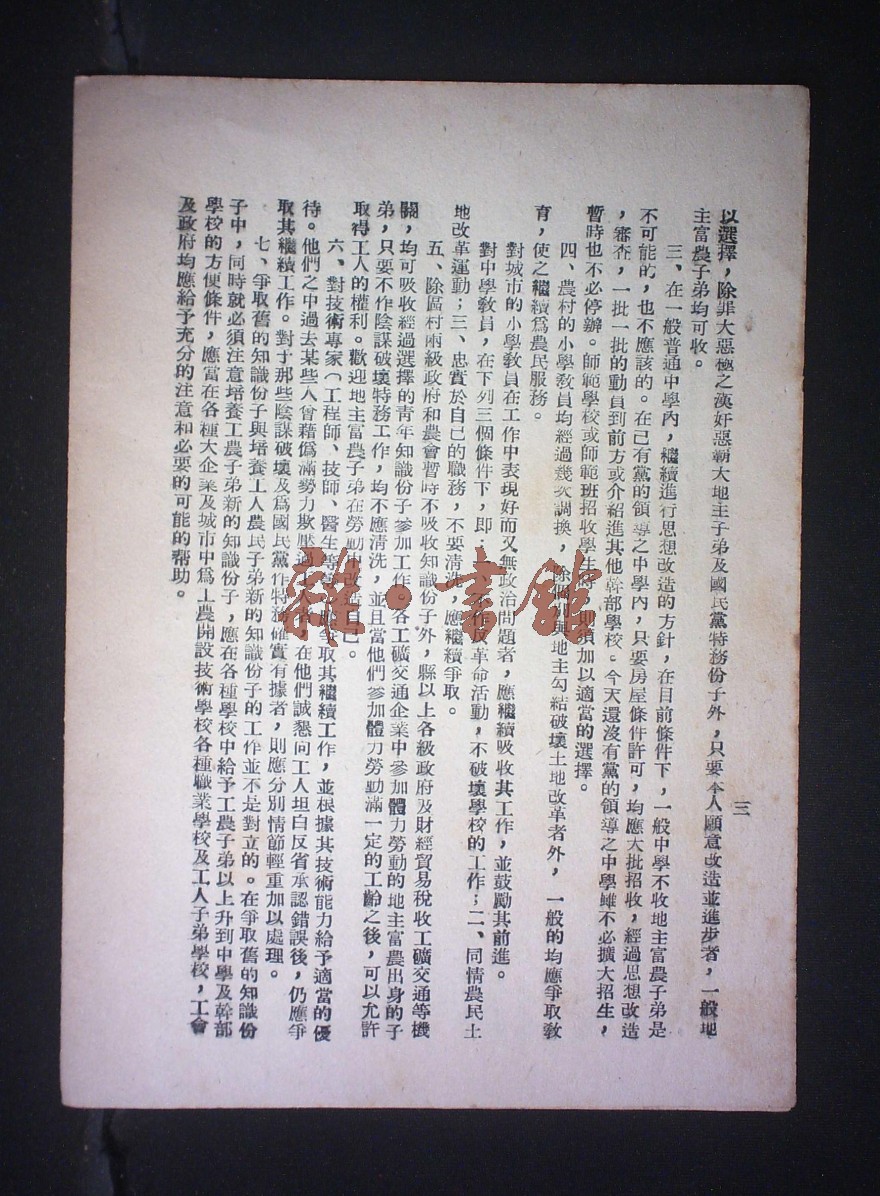 三
以選擇，除罪大惡極之漢奸惡霸大地主子弟及國民黨特務份子外，只要本人願意改造並進步者，一般地
主富農子弟均可收。
三、在一般普通中學內，繼續進行思想改造的方針，在目前條件下，一般中學不收地主富農子弟是
不可能的，也不應該的。在已有黨的領導之中學內，只要房屋條件許可，均應大批招收，經過思想改造
，審查，一批一批的動員到前方或介紹進其他幹部學校。今天還沒有黨的領導之中學雖不必擴大招生，
暫時也不必停辦。師範學校或師範班招收學生時，則須加以適當的選擇。
四、農村的小學教員均經過幾次調換，除個別與地主勾結破壞土地改革者外，一般的均應爭取教
育，使之繼續爲農民服務。
對城市的小學教員在工作中表現好而又無政治問題者，應繼續吸收其工作，並鼓勵其前進。
對中學教員，在下列三個條件下，即：一、不作反革命活動，不破壞學校的工作；二、同情農民土
地改革運動；三、忠實於自己的職務，不要清洗，應繼續爭取。
五、除區村兩級政府和農會暫時不吸收知識份子外，縣以上各級政府及財經貿易稅收工礦交通等機
關，均可吸收經過選擇的青年知識份子參加工作。各工礦交通企業中參加體力勞動的地主富農出身的子
弟，只要不作陰謀破壞特務工作，均不應清洗，並且當他們參加體力勞動滿一定的工齡之後，可以允許
取得工人的權利。歡迎地主富農子弟在勞動中改造自己。
六、對技術專家（工程師、技師、醫生等）應爭取其繼續工作，並根據其技術能力給予適當的優
待。他們之中過去某些人曾藉僞滿勢力欺壓過工人者，在他們誠懇向工人坦白反省承認錯誤後，仍應爭
取其繼續工作。對于那些陰謀破壞及爲國民黨作特務確實有據者，則應分別情節輕重加以處理。
七、爭取舊的知識份子與培養工人農民子弟新的知識份子的工作並不是對立的。在爭取舊的知識份
子中，同時就必須注意培養工農子弟新的知識份子，應在各種學校中給予工農子弟以上升到中學及幹部
學校的方便條件，應當在各種大企業及城市中爲工農開設技術學校各種職業學校及工人子弟學校，工會
及政府均應給予充分的注意和必要的可能的幫助。
雜·書館